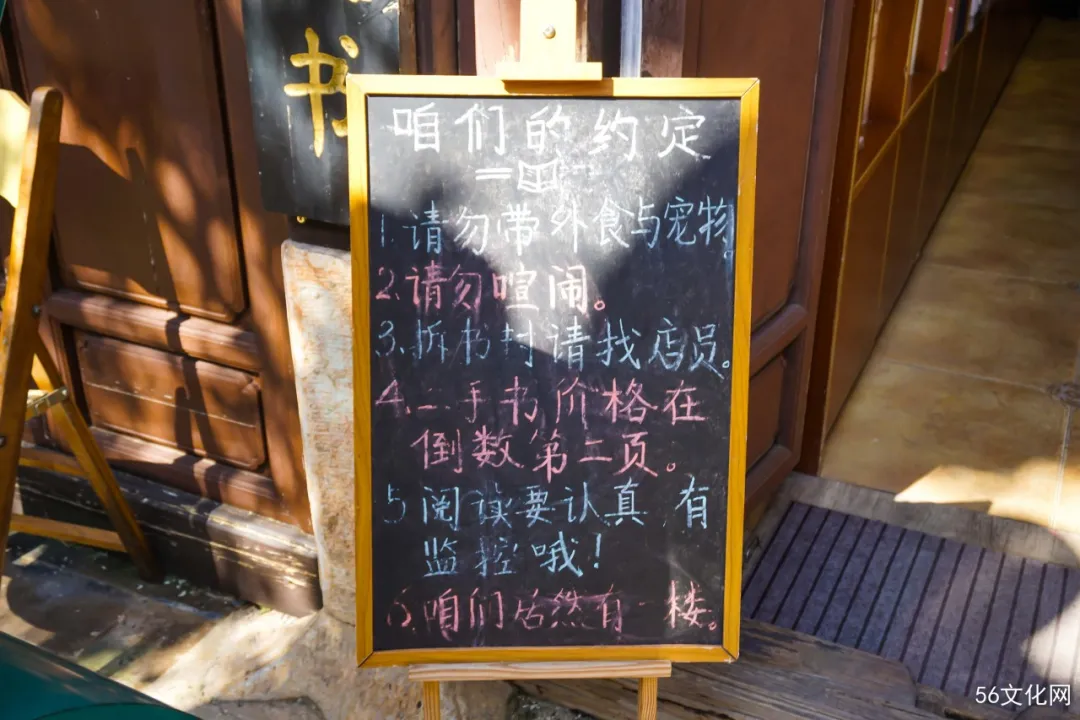 书
咱们的约定
1.请勿带外食与宠物。
2.请勿喧闹。
3.拆书封请找店员。
4.二手书价格在
倒数第二页。
5阅读要认真 有
监控哦!
6.咱们居然有一楼。
56文化网